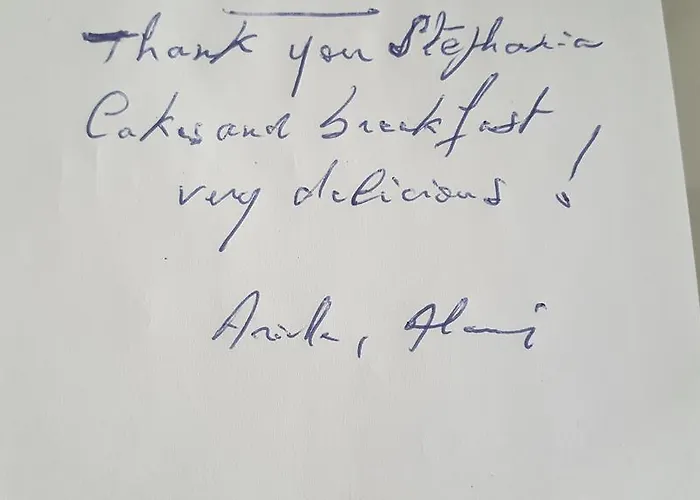 Thank you Stephania
Cakes and breakfast
very delicious !